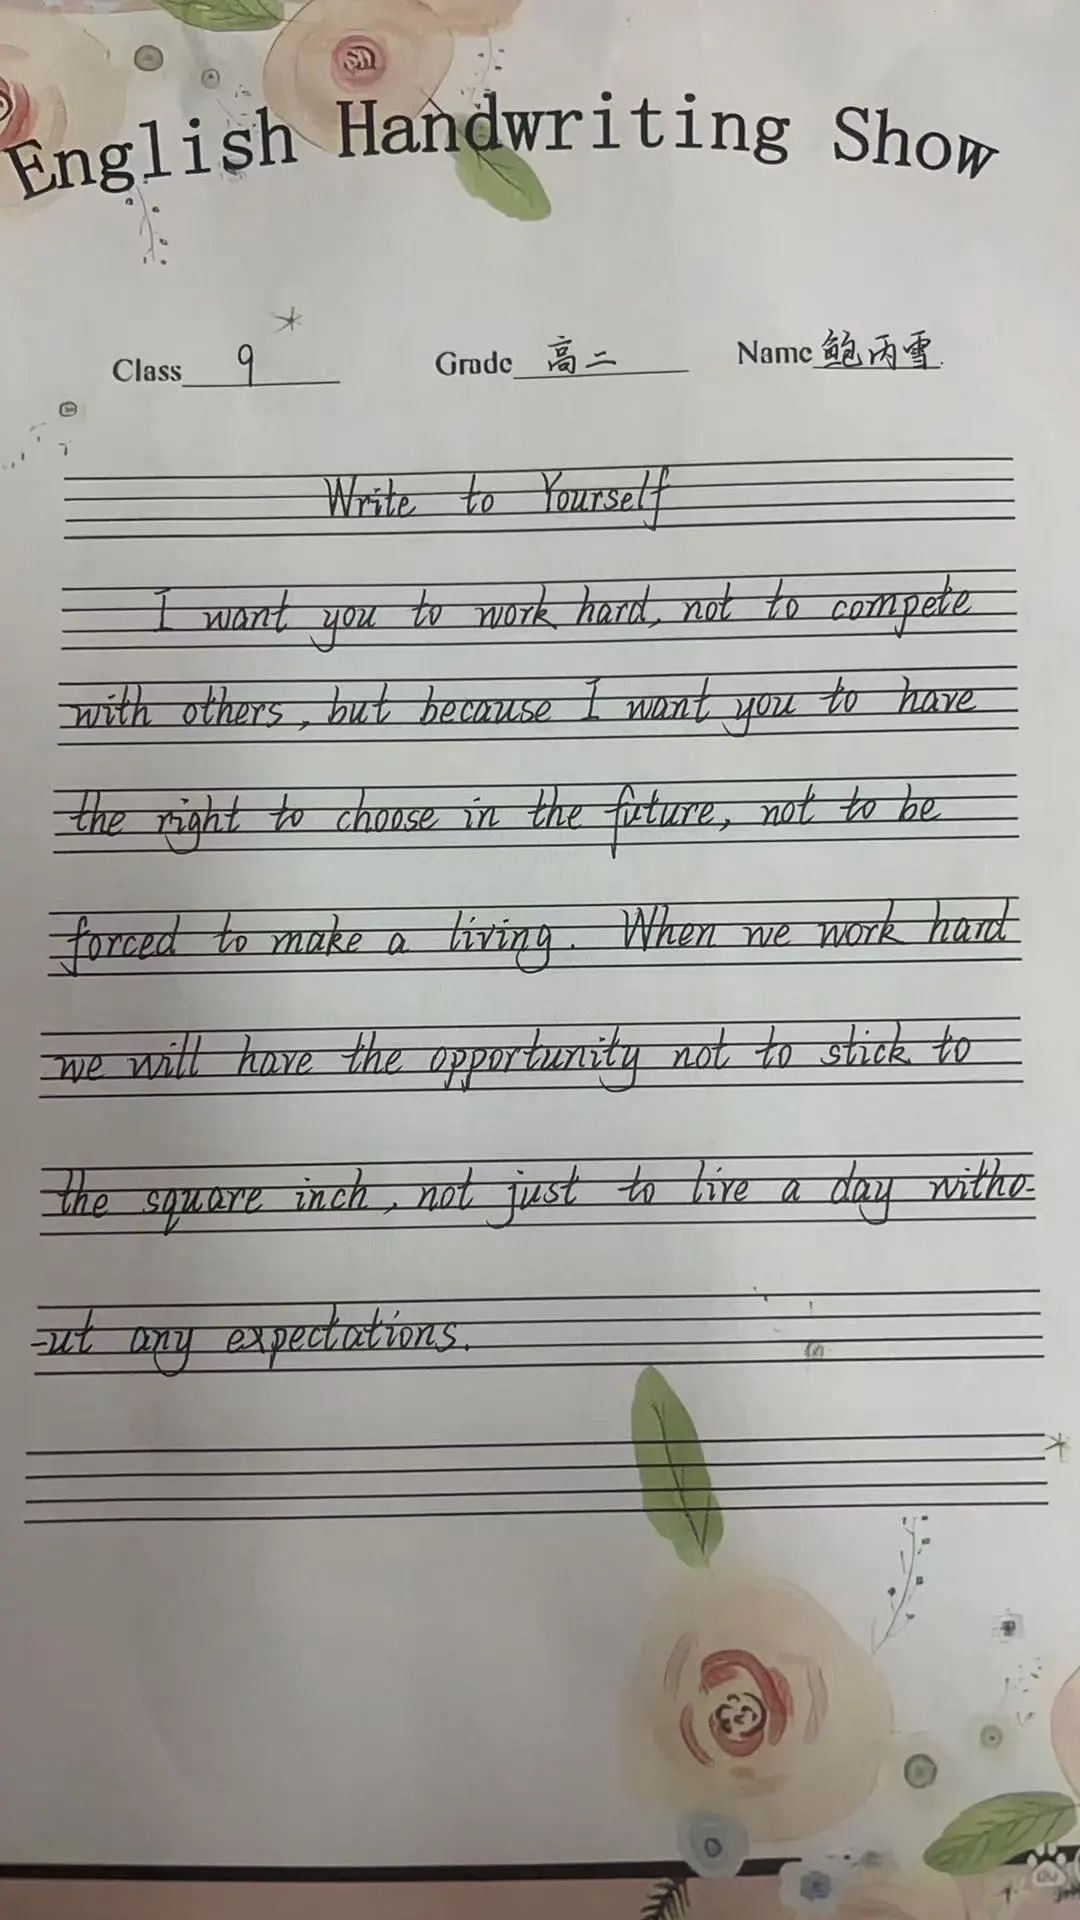 English Handwriting Show
Class 9 Grade 高二 Name 鲍丙雪
Write to Yourself
I want you to work hard, not to compete
with others, but because I want you to have
the right to choose in the future, not to be
forced to make a living. When we work hard
we will have the opportunity not to stick to
the square inch, not just to live a day witho-
-ut any expectations.